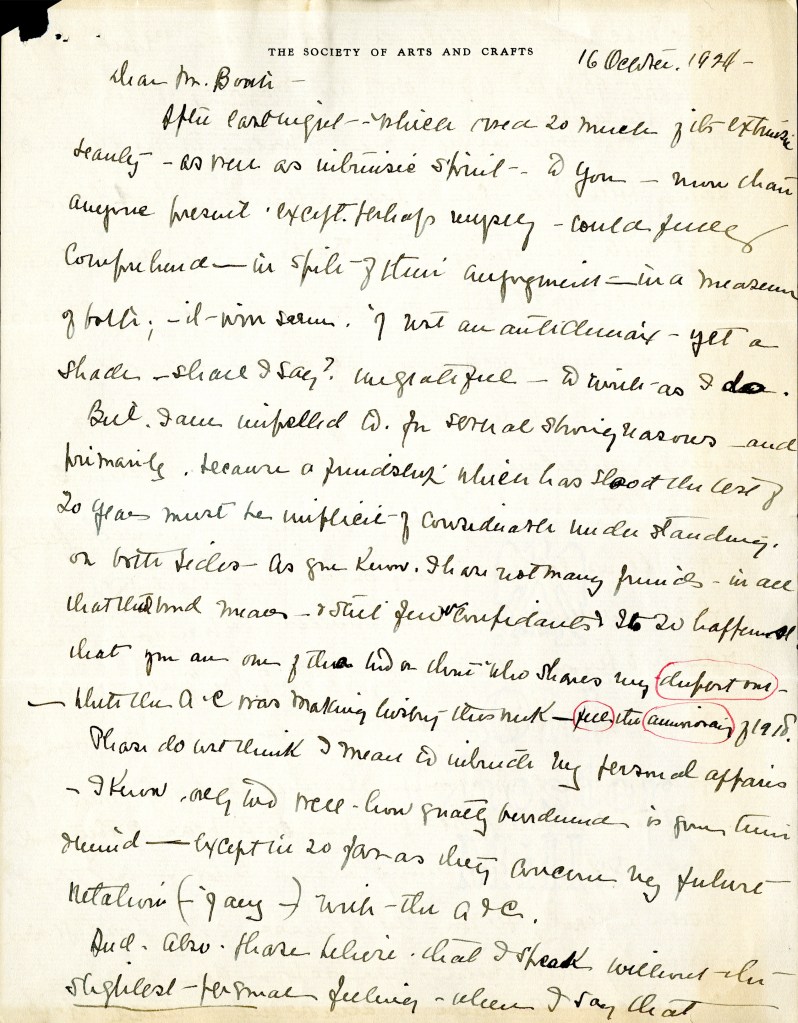 THE SOCIETY OF ARTS AND CRAFTS
16 October. 1924 -
Dear Mr. Booth -
After last night - which owed so much of its extrinsic
beauty - as well as intrinsic spirit - to you - more than
anyone present except perhaps myself - could fully
comprehend - in spite of their enjoyment - in a measure
of both; - it will seem. if not an anticlimax - yet a
shade - shall I say? ungrateful - to write as I do.
But. I am impelled to. for several strong reasons - and
primarily. because a friendship which has stood the test of
20 years must be implicit of considerable understanding.
on both sides - As you know. I have not many friends - in all
that the word means - & still few "confidants". It so happens
that you are one of the two or three who shares my deepest one -
- While the A & C was making history this week - fell the anniversary of 1918.
Please do not think I mean to intrude my personal affairs
- I know. only too well - how greatly burdened is your time
& mind - except in so far as they concern my future
relation (- if any -) with the A & C.
And. also. please believe. that I speak without the
slightest - personal feeling - when I say that